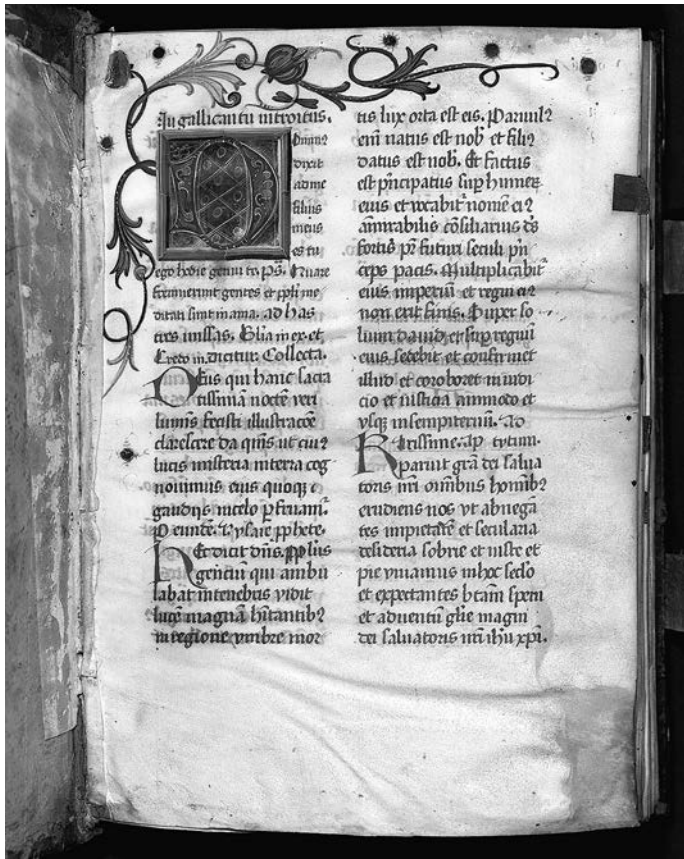 In gallicantu introitus.
Dominꝰ
dixit
ad me
filius
meus
es tu
ego hodie genui te. p̄s. Quare
fremuerunt gentes et ppl̄i me
ditati sunt inania. ad has
tres missas. Gl̄ia in ex. et
Credo in. dicitur. Collecta.
Deus qui hanc sacra
tissimam noctē veri
luminis fecisti illustracōe
clarescere da q̄ms ut cuiꝰ
lucis misteria in terra cog
novimus eius quoqꝫ
gaudiis in celo p̄fruam̄.
P eundē. ysaie pphete.
Hec dicit dn̄s. pp̄lus
gencium qui ambu
labat in tenebris vidit
lucē magnā hītantibꝰ
in regione vmbre mor
tis lux orta est eis. Parvulꝰ
em̄ natus est nob̄ et filiꝰ
datus est nob̄. Et factus
est pͥncipatus sup̄ humeꝝ
eius et vocabit᷑ nomē eiꝰ
amirabilis cōsiliarius d̄s
fortis pr̄ futuri seculi pͥn
ceps pacis. Multiplicabit᷑
eius imperiū et regni eiꝰ
non erit finis. Super so
lium dauid et sup̄ regnū
eius sedebit et confirmet
illud et coroboret in iudi
cio et iusticia ammodo et
vsqꝫ in sempiternū. ad
Krissime. ap̄ tytum.
paruit gr̄a dei salua
toris nr̄i omnibus hominibꝰ
erudiens nos vt abnegā
tes impietatē et secularia
desideria sobrie et iuste et
pie viuamus in hoc sc̄lo
et expectantes b̄tam spem
et aduentū gl̄ie magni
dei saluatoris nr̄i ih̄u xp̄i.